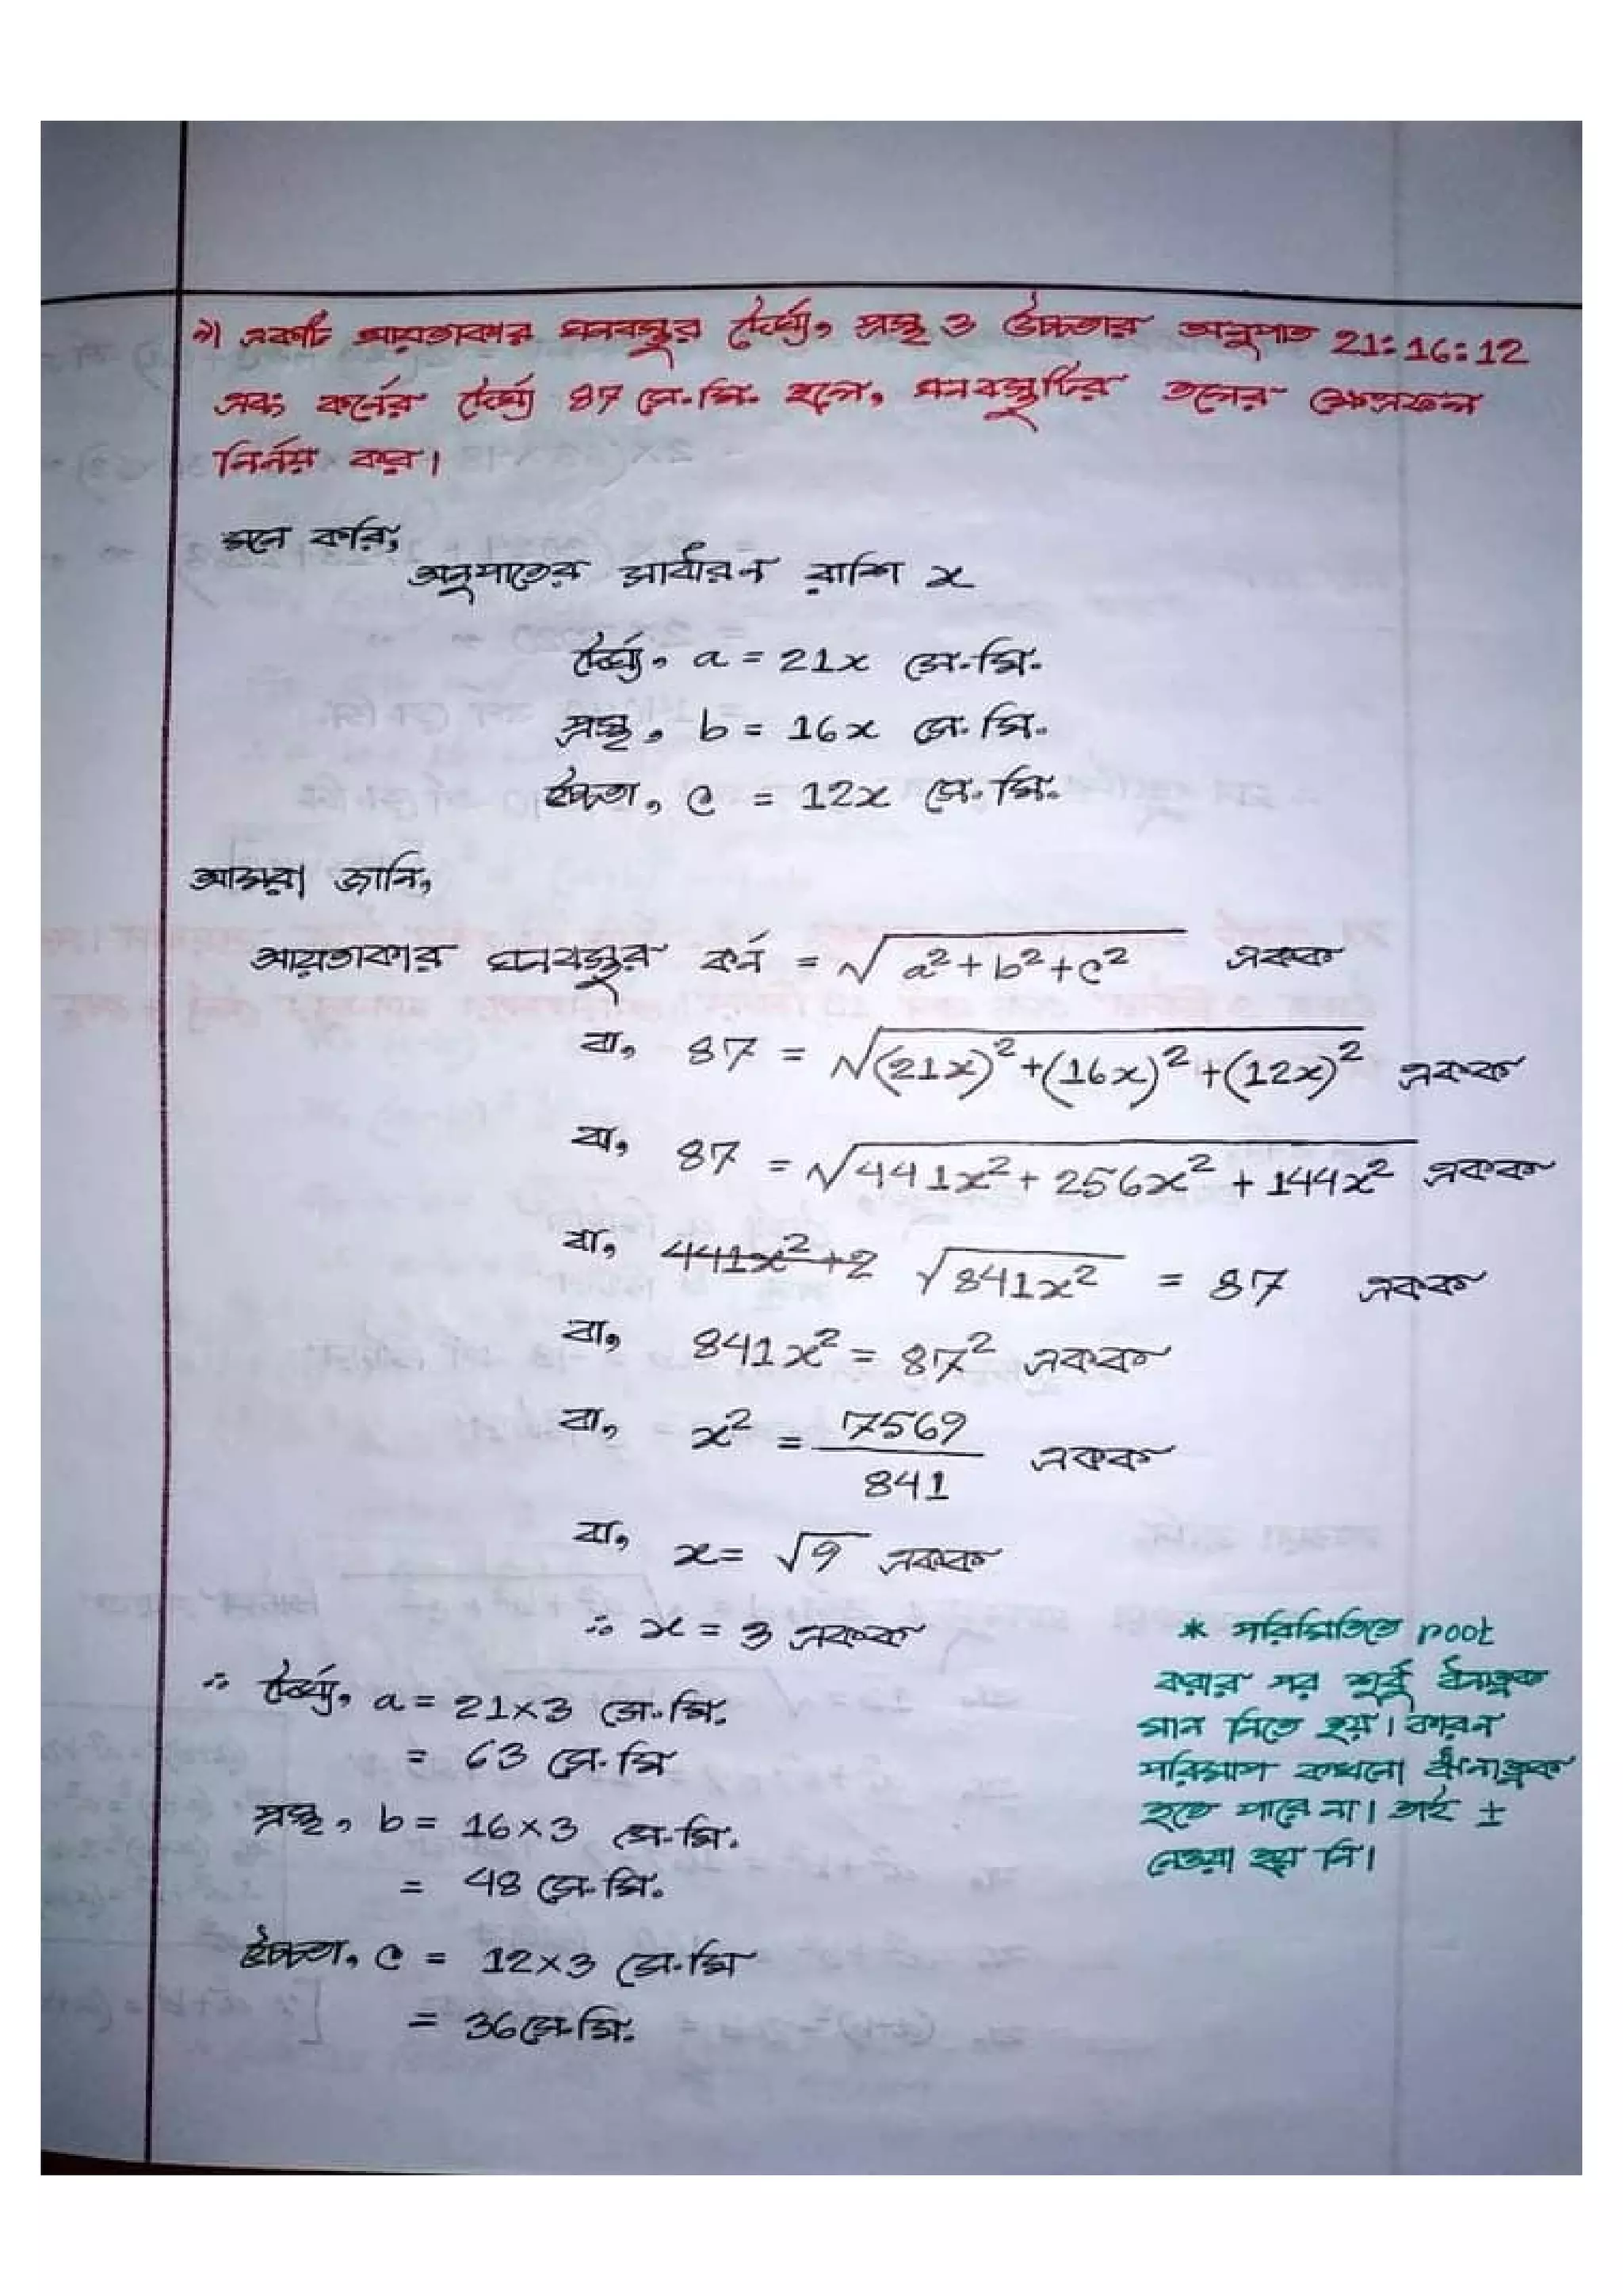 ১। একটি আয়তাকার ঘনবস্তুর দৈর্ঘ্য, প্রস্থ ও উচ্চতার অনুপাত 21:16:12
এবং কর্নের দৈর্ঘ্য 87 সে.মি. হলে, ঘনবস্তুটির তলের ক্ষেত্রফল
নির্নয় কর।
মনে করি,
অনুপাতের সাধারন রাশি x
দৈর্ঘ্য, a = 21x সে.মি.
প্রস্থ, b = 16x সে.মি.
উচ্চতা, c = 12x সে.মি.
আমরা জানি,
আয়তাকার ঘনবস্তুর কর্ন = √a²+b²+c² একক
বা, 87 = √(21x)²+(16x)²+(12x)² একক
বা, 87 = √441x²+256x²+144x² একক
বা, 441x²+2 √841x² = 87 একক
বা, 841x² = 87² একক
বা, x² = 7569/841 একক
বা, x = √9 একক
∴ x = 3 একক
∴ দৈর্ঘ্য, a = 21×3 সে.মি.
= 63 সে.মি
প্রস্থ, b = 16×3 সে.মি.
= 48 সে.মি.
উচ্চতা, c = 12×3 সে.মি
= 36 সে.মি.
* পরিমিতিতে root
করার পর শুধু ধনাত্নক
মান নিতে হয়। কারন
পরিমাপ কখনো ঋনাত্নক
হতে পারে না। তাই ±
নেওয়া হয় নি।